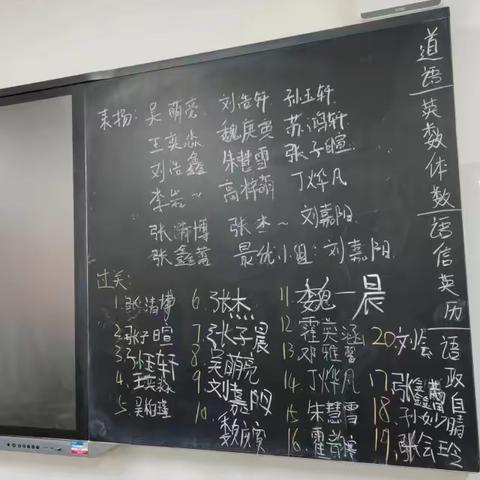 表扬：吴萌亮 刘浩轩 孙玉轩
王奕淼 魏庚寅 苏鸿轩
刘浩鑫 朱慧雪 张子暄
李岩~ 高梓萌 丁烨凡
张清博 张杰~ 刘嘉阳
张鑫蕾 最优小组：刘嘉阳
过关：
1. 张清博
2. 张子暄
3. 孙玉轩
4. 王奕淼
5. 吴柏
6. 张杰
7. 张子晨
8. 吴萌亮
9. 刘嘉阳
10. 魏庚寅
11. 魏一晨
12 霍英涵
13. 邓雅馨
14. 丁烨凡
15. 朱慧雪
16. 霍
17. 张鑫蕾
18. 孙妙晴
19. 张会玲
20 刘会
道语
英数体数
语信英历
语政自